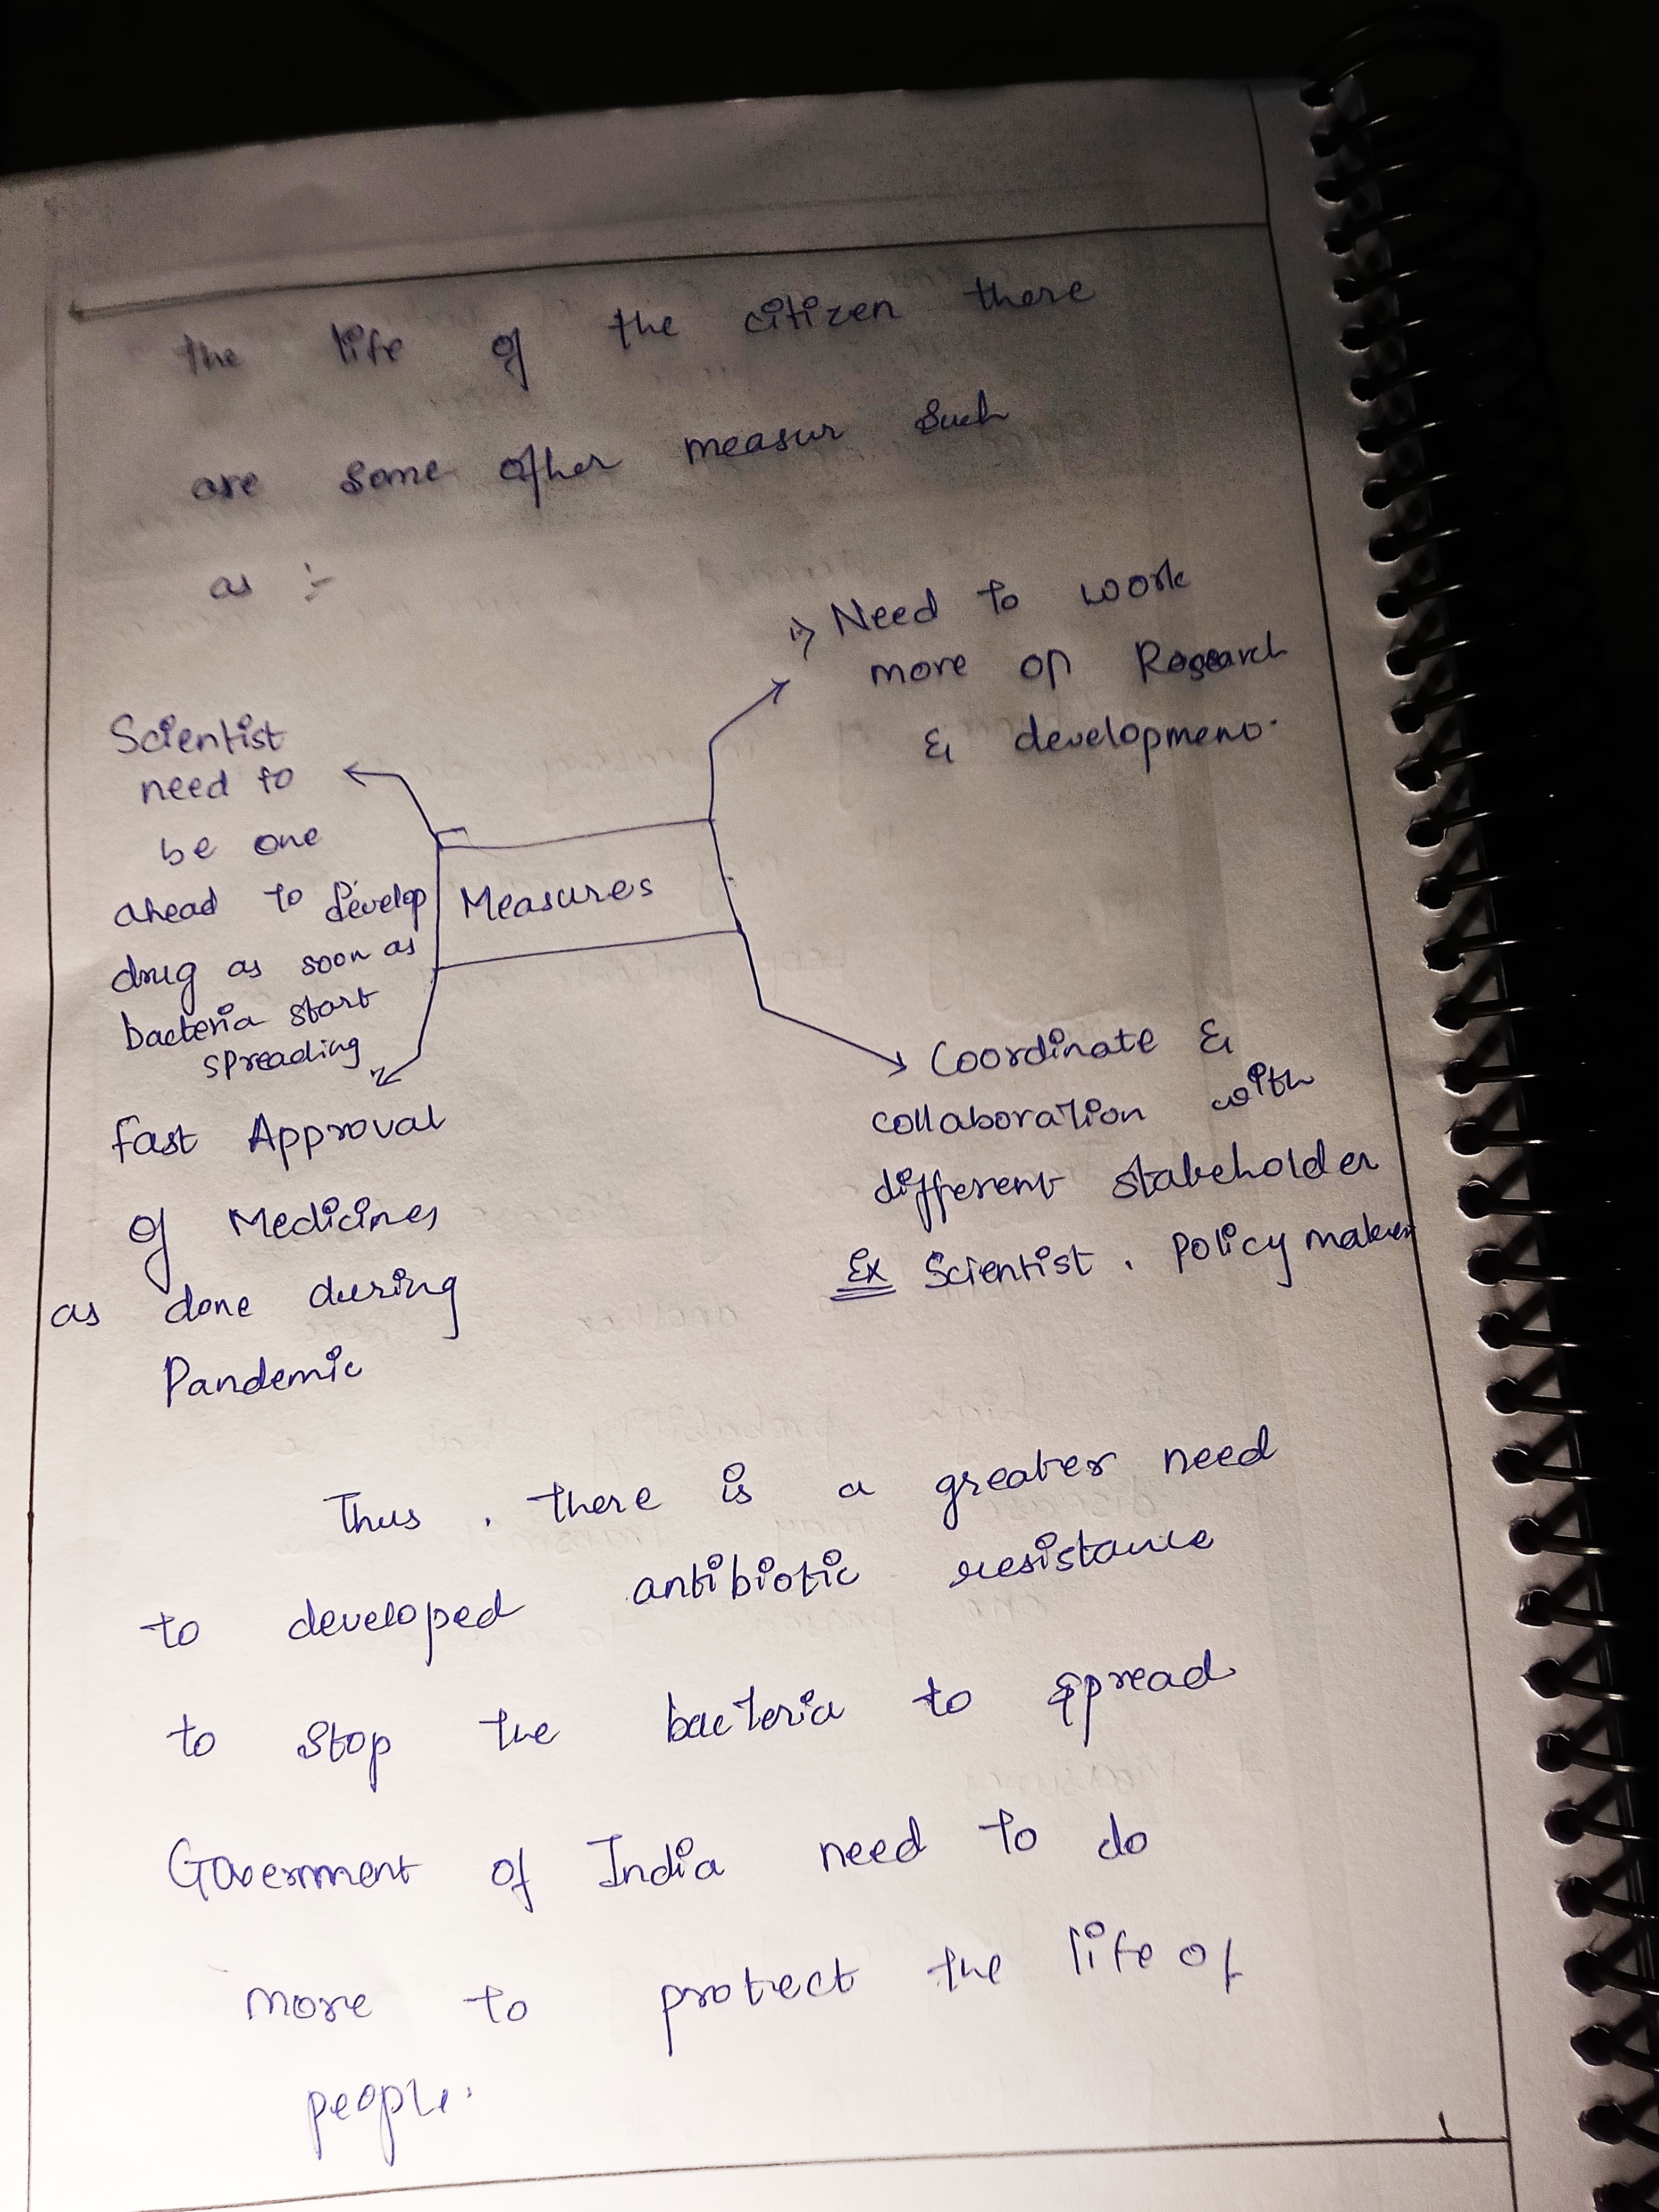 the life of the citizen there
are some other measur such
as :-
Scientist
need to
be one
ahead to develop
drug as soon as
bacteria start
spreading
Measures
Need to work
more on Research
& development.
Fast Approval
of Medicines
as done during
Pandemic
Coordinate &
collaboration with
different stakeholder
Ex Scientist, Policy makers
Thus, there is a greater need
to developed antibiotic resistance
to stop the bacteria to spread
Government of India need to do
more to protect the life of
people.